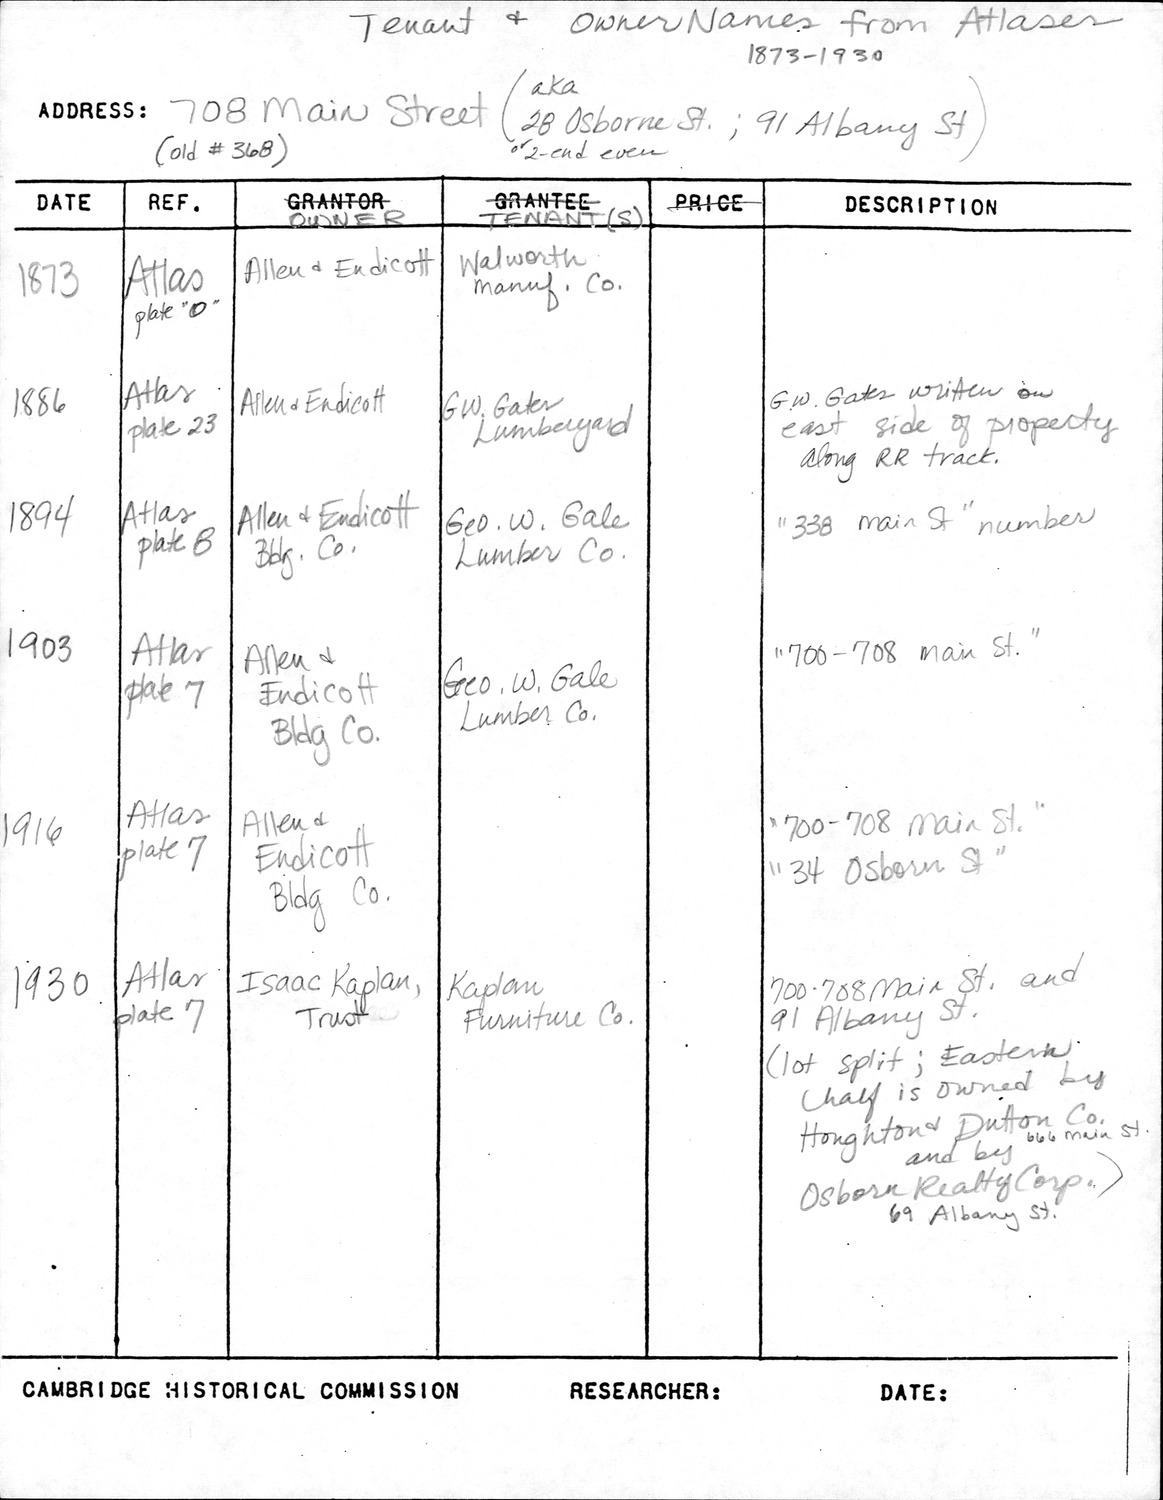 Tenant & Owner Names from Atlases
1873-1930
ADDRESS: 708 Main Street (aka
28 Osborne St. ; 91 Albany St)
(old # 368)
or 2-end even
DATE REF. GRANTOR GRANTEE PRICE DESCRIPTION
OWNER TENANT(S)
1873 Atlas Allen & Endicott Walworth
plate "O" Manuf. Co.
1886 Atlas Allen & Endicott G.W. Gates G.W. Gates written on
plate 23 Lumberyard east side of property
along RR track.
1894 Atlas Allen & Endicott Geo. W. Gale "338 Main St" number
plate 8 Bldg. Co. Lumber Co.
1903 Atlas Allen & "700-708 Main St."
plate 7 Endicott Geo. W. Gale
Bldg Co. Lumber Co.
1916 Atlas Allen & "700-708 Main St."
plate 7 Endicott "34 Osborn St"
Bldg Co.
1930 Atlas Isaac Kaplan, Kaplan 700-708 Main St. and
plate 7 Trust Furniture Co. 91 Albany St.
(lot split; Eastern
half is owned by
Houghton & Dutton Co.
666 Main St.
and by
Osborn Realty Corp.)
69 Albany St.
CAMBRIDGE HISTORICAL COMMISSION RESEARCHER: DATE: